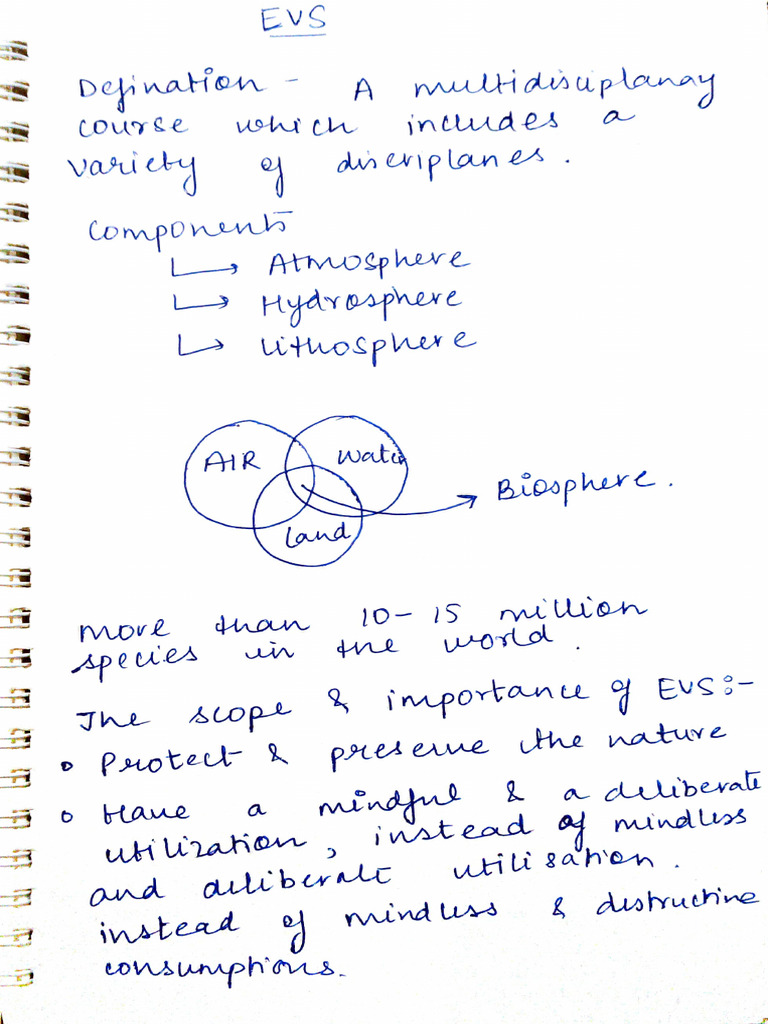 EVS
Defination - A multidisciplanay
course which includes a
variety of discriplanes.
Components
Atmosphere
Hydrosphere
Lithosphere
AIR
Water
Land
Biosphere.
More than 10-15 million
species in the world.
The scope & importance of EVS:-
• Protect & preserve the nature
• Have a mindful & a deliberate
utilization, instead of mindless
and deliberate utilisation.
instead of mindless & destructive
consumptions.